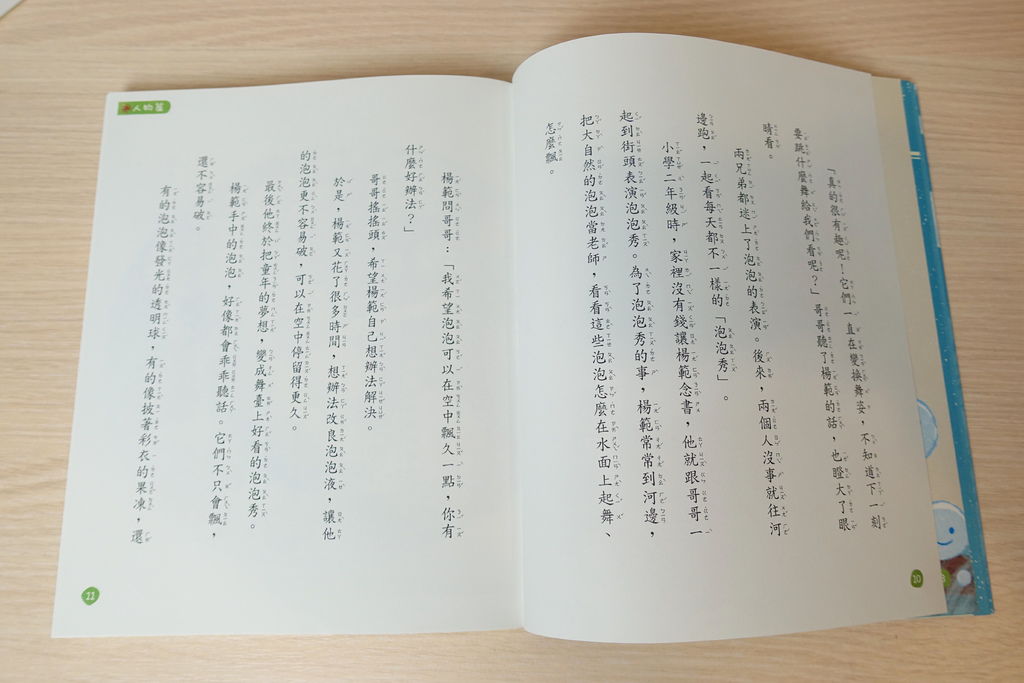 「真的很有趣呢！它們一直在變換舞姿，不知道下一刻
要跳什麼舞給我們看呢？」哥哥聽了楊範的話，也瞪大了眼
睛看。
兩兄弟都迷上了泡泡的表演。後來，兩個人沒事就往河
邊跑，一起看每天都不一樣的「泡泡秀」。
小學二年級時，家裡沒有錢讓楊範念書，他就跟哥哥一
起到街頭表演泡泡秀。為了泡泡秀的事，楊範常常到河邊，
把大自然的泡泡當老師，看看這些泡泡怎麼在水面上起舞、
怎麼飄。
10
人物篇
楊範問哥哥：「我希望泡泡可以在空中飄久一點，你有
什麼好辦法？」
哥哥搖搖頭，希望楊範自己想辦法解決。
於是，楊範又花了很多時間，想辦法改良泡泡液，讓他
的泡泡更不容易破，可以在空中停留得更久。
最後他終於把童年的夢想，變成舞臺上好看的泡泡秀。
楊範手中的泡泡，好像都會乖乖聽話。它們不只會飄，
還不容易破。
有的泡泡像發光的透明球，有的像披著彩衣的果凍，還
11